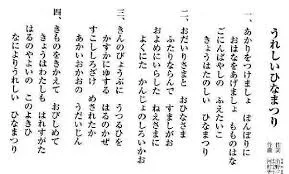 うれしいひなまつり
作詞
作曲
一、あかりをつけましょ　ぼんぼりに
おはなをあげましょ　もものはな
ごにんばやしの　ふえたいこ
きょうはたのしい　ひなまつり
二、おだいりさまと　おひなさま
ふたりならんで　すましがお
およめにいらした　ねえさまに
よくにた　かんじょのしろいかお
三、きんのびょうぶに　うつるひを
かすかにゆする　はるのかぜ
すこししろざけ　めされたか
あかいおかおの　うだいじん
四、きものをきかえて　おびしめて
きょうはわたしも　はれすがた
はるのやよいの　このよきひ
なによりうれしい　ひなまつり